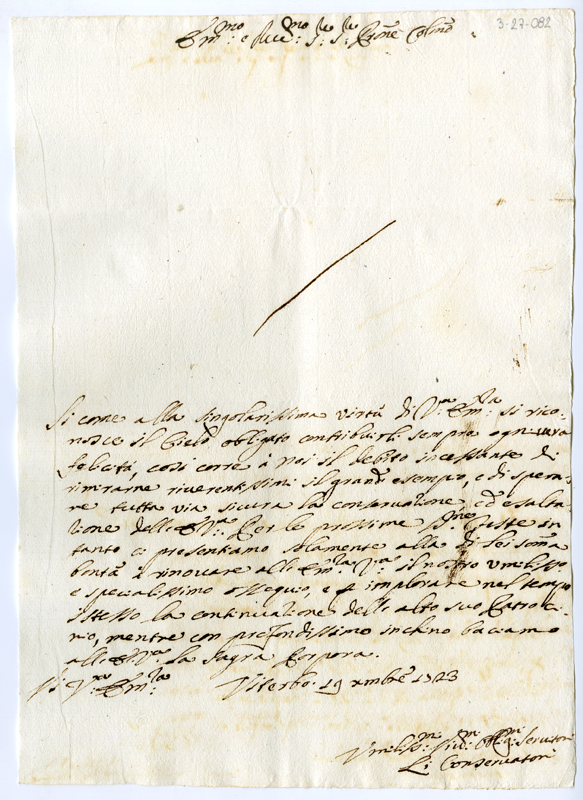 3-27-082
Em.mo e Rev.mo S.re S.re Prone Colmo
Si come alla singolarissima virtù di V.ra Em.za si rico-
nosce il Cielo obligato contribuirli sempre ogni vera
felicità, così corre à noi il debito incessante di
rimirarne riverentissimi il grand'esempo, e di spera-
re tutta via sicura la conservatione, ed esalta-
tione dell'E. V.ra Per le prossime S.me feste in
tanto ci presentiamo solamente alla di lei somma
bontà à rinovare all' Em.za V.ra il nostro umilissimo
e specialissimo ossequio, e à implorare nel tempo
istesso la continuatione dell' alto suo Patroci-
nio, mentre con profondissimo inchino baciamo
all'E. V.ra la Sagra Porpora.
Di V.ra Em.za Viterbo. 19 xmbre 1723
Umiliss.mi Div.mi Oblig.mi Servitori
Li Conservatori